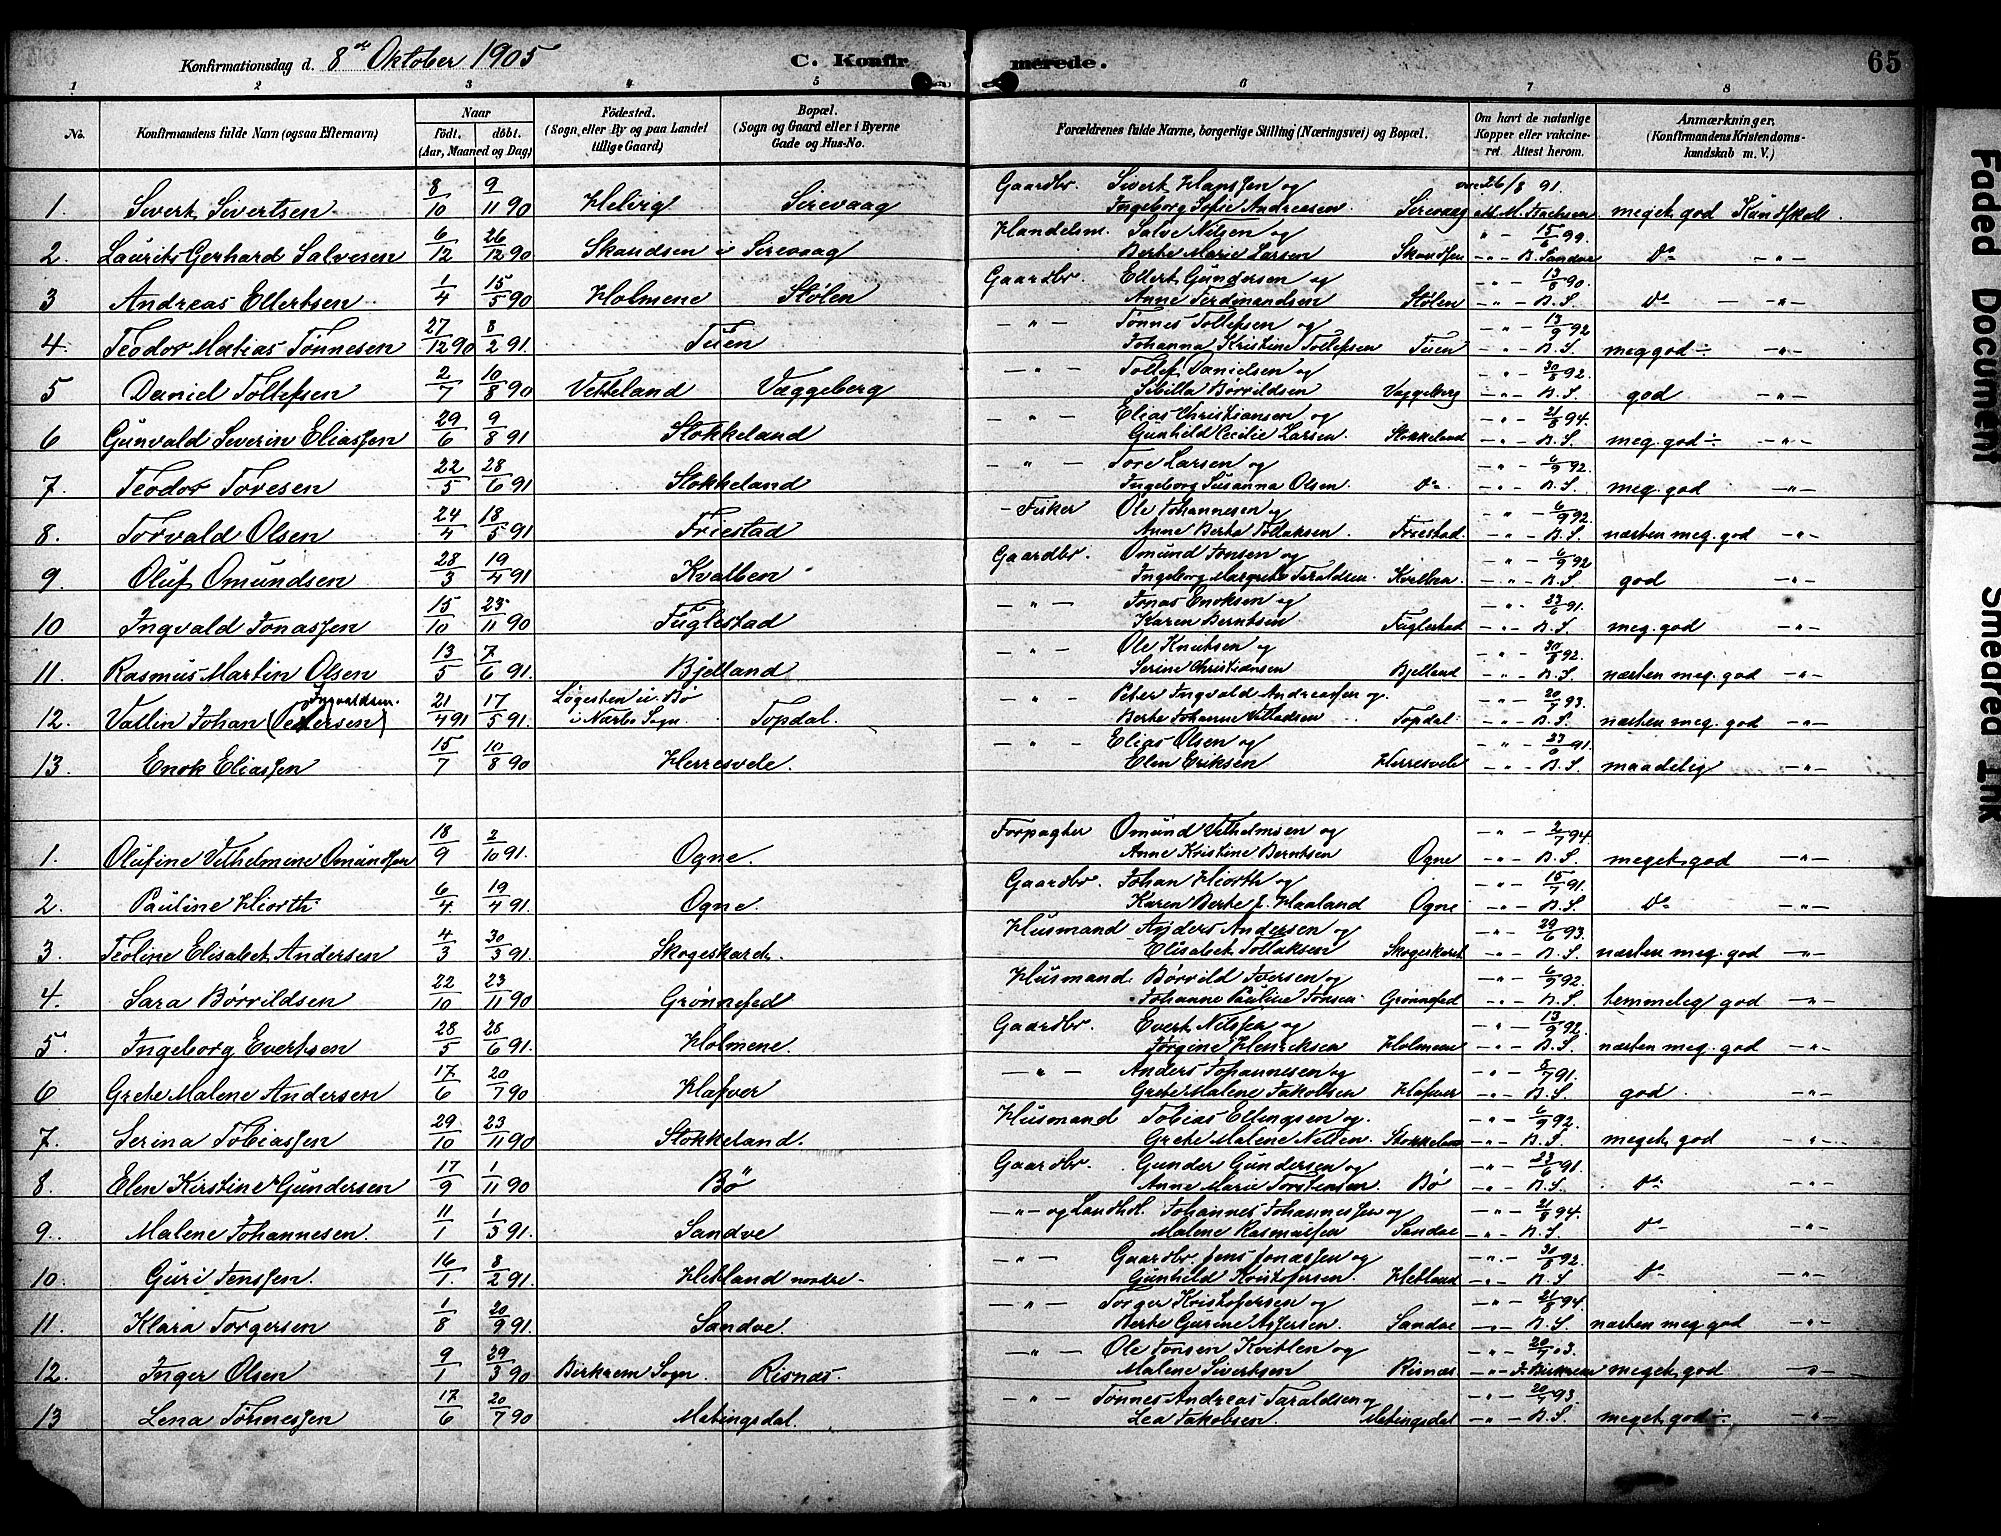 Konfirmationsdag d. 8de Oktober 1905 C. Konfirmerede. 65
1 2 3 4 5 6 7 8
No. Konfirmandens fulde Navn (ogsaa Efternavn) Naar født. døbt. (Aar, Maaned og Dag) Fødested. (Sogn eller By og paa Landet tillige Gaard) Bopæl. (Sogn og Gaard eller i Byerne Gade og Hus-No. Forældrenes fulde Navne, borgerlige Stilling (Næringsvei) og Bopæl. Om havt de naturlige Kopper eller vakcineret. Attest herom. Anmærkninger, (Konfirmandens Kristendomskundskab m. V.)
1. Sivert Sivertsen 8/10 9/11 90 Helvig Sirevaag Gaardbr. Sivert Hanssen og Ingeborg Sofie Andreasen. Sirevaag 26/8 91. meget god Kundskab
2. Laurits Gerhard Salvesen 6/12 26/12 90 Skandsen i Sirevaag Handelsm. Salve Nilsen og Berte Marie Larsen Skandsen -"- 15/6 99. B. Sandve Do -"-
3 Andreas Ellertsen 1/4 15/5 90 Holmene Stølen Gaardbr. Ellert Gundersen og Anne Ferdinandsen Stølen -"- 13/6 90. B. S. Do -"-
4. Teodor Matias Tønnesen 27/12 90 8/2 91. Tuen -"- Tønnes Tollefsen og Johanna Kristine Tollefsen Tuen -"- 13/9 92 B. S. meg god ÷ -"-
5 Daniel Tollefsen 2/7 10/8 90 Vetteland Væggeberg -"- Tollef Danielsen og Sibilla Børrildsen Væggeberg -"- 30/8 92. B. S. god -"-
6 Gunvald Severin Eliassen 29/6 9/8 91 Stokkeland -"- Elias Christiansen og Gunhild Cecilie Larsen. Stokkeland -"- 21/8 94. B. S. meg. god ÷ -"-
7. Teodor Toresen 22/5 28/6 91 Stokkeland -"- Tore Larsen og Ingeborg Susanna Olsen. Do -"- 6/9 92. B. S. meg. god -"-
8. Torvald Olsen 24/4 18/5 91 Friestad - Fisker Ole Johannesen og Anne Berte Tollaksen. Friestad. -"- 6/9 92. B. S. næsten meg. god -"-
9 Oluf Omundsen 28/3 19/4 91 Kvalben Gaardbr. Omund Jonsen og Ingeborg Margrete Taraldsen. Kvalben. -"- 6/9 92 B. S. god -"-
10 Ingvald Jonassen 15/10 23/11 90 Fuglestad -"- Jonas Enoksen og Karen Berntsen Fuglestad -"- 23/6 91. B. S. meg. god -"-
11. Rasmus Martin Olsen 13/5 7/6 91. Bjelland -"- Ole Knutsen og Serine Christiansen Bjelland -"- 30/8 92. B. S. næsten meg. god -"-
12. Vallin Johan (Pedersen) Ingvaldsen. 21/4 91 17/5 91. i Nærbø Sogn. Topdal. -"- Peter Ingvald Andreassen og Berte Johanne Villadsen Topdal. -"- 20/7 93. B. S. næsten meg. god -"-
13. Enok Eliassen 15/7 10/8 90 Herresvele. -"- Elias Olsen og Elen Eriksen Herresvele -"- 23/6 91. B. S. maadelig -"-
1. Olufine Vilhelmine Omundsen 18/9 2/10 91. Ogne. Forpagter Omund Vilhelmsen og Anne Kristine Berntsen Ogne -"- 2/7 94. B. S. meget god -"-
2. Pauline Hiorth 6/4 19/4 91. Ogne. Gaardbr. Johan Hiorth og Karen Berte f. Haaland Ogne -"- 15/7 91. B. S. Do -"-
3. Teoline Elisabet Andersen 4/3 30/3 91. Skogeskardt. Husmand Anders Andersen og Elisabet Tollaksen Skogeskaret -"- 29/6 93. B. S. næsten meg. god -"-
4. Sara Børrildsen 22/10 23/11 90 Grønnefed Husmand. Børrild Iversen og Johanne Pauline Jonsen. Grønnefed -"- 6/9 92. B. S. temmelig god -"-
5. Ingeborg Evertsen 28/5 28/6 91. Holmene. Gaardbr. Evert Nilssen og Jørgine Henriksen Holmene -"- 13/9 92. B. S. næsten meg. god -"-
6 Grete Malene Andersen 17/6 20/7 90 Hæfver -"- Anders Johannesen og Grete Malene Jakobsen Hæfver -"- 5/7 91. B. S. god. -"-
7. Serina Tobiassen 29/10 23/11 90 Stokkeland. Husmand Tobias Ellingsen og Grete Malene Nilsen. Stokkeland -"- 6/9 92. B. S. meget god -"-
8. Elen Kirstine Gundersen 17/9 1/11 90 Bø Gaardbr. Gunder Gundersen og Anne Marie Torstensen. Bø -"- 23/6 91. B. S. Do -"-
9. Malene Johannesen. 11/1 1/3 91. Sandve -"- og Landhl. Johannes Johannessen og Malene Rasmussen Sandve -"- 21/8 94. B. S. Do -"-
10. Guri Jenssen. 16/1. 8/2 91. Hetland nordre - -"- Gaardbr. Jens Jonassen og Gunhild Kristofersen. Hetland -"- 30/8 92. B. S. Do -"-
11. Klara Torgersen 1/8 20/9 91. Sandve. -"- Torger Kristofersen og Berte Gurine Assersen. Sandve -"- 21/8 94. B. S. næsten meg. god -"-
12. Inger Olsen 9/1 29/3 90 Birkrem Sogn Risnæs. -"- Ole Jonsen Kvitlen og Malene Sivertsen Risnæs -"- meget god -"-
13 Lena Tønnessen 17/6 20/7 90 Matingsdal. -"- Tønnes Andreas Taraldsen og Lea Jakobsen. Matingsdal -"- 20/7 93. B. S. meget god ÷ -"-
Faded Document
Smeared Ink